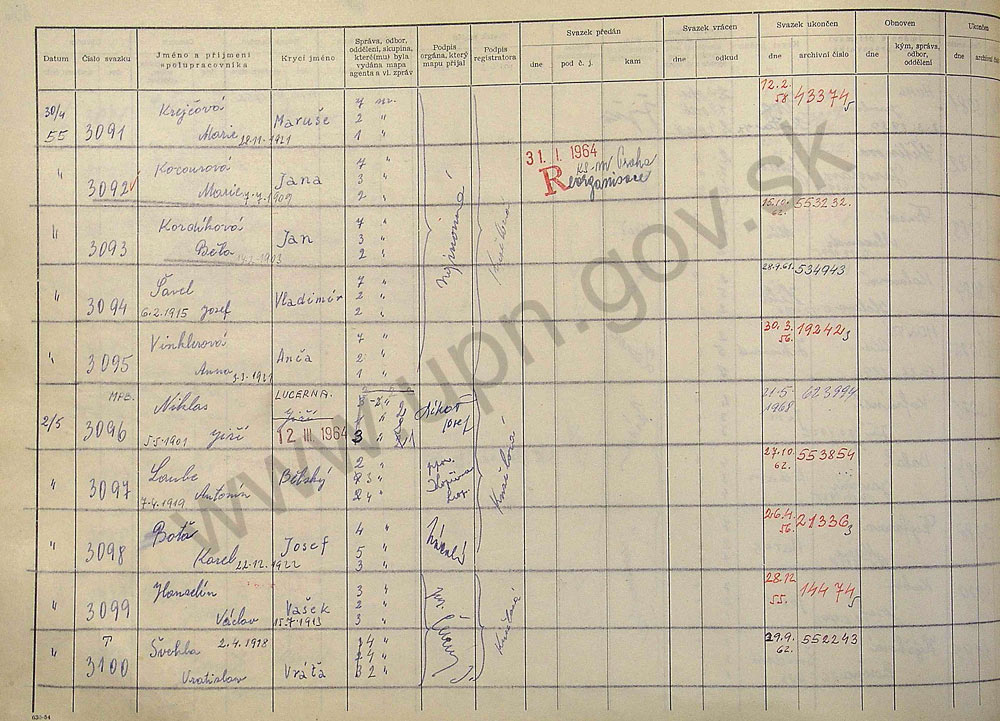 Datum
Číslo svazku
Jméno a příjmení
spolupracovníka
Krycí jméno
Správa, odbor,
oddělení, skupina,
které(mu) byla
vydána mapa
agenta a vl. zpráv
Podpis
orgána, který
mapu přijal
Podpis
registratora
Svazek předán
dne
pod č. j.
kam
Svazek vrácen
dne
odkud
Svazek ukončen
dne
archivní číslo
Obnoven
dne
kým, správa,
odbor,
oddělení
Ukončen
archivní
30/4
55
3091
Krejčová
Marie 28.11.1921
Maruše
7
2 "
1 "
12.2.
58.
43374
5
" 3092
Kocourová
Marie 7.7.1909
Jana
7 "
3 "
2 "
31. I. 1964
Praha
Reorganisace
" 3093
Kordíková
Běta
Jan
7 "
3 "
2 "
15.10.
62.
553232.
" 3094
Šavel
6.2.1915 Josef
Vladimír
7 "
2 "
2 "
28.9.61.
534943
" 3095
Vinklerová
Anna
Anča
7 "
2 "
1 "
30.3.
56.
19242
3
2/5
MPB.
3096
Niklas
5.5.1901 Jiří
LUCERNA.
Jiří
12 III. 1964
3 "
Josef
21-5-
1968
623994
" 3097
Laube
7.4.1919 Antonín
Bělský
2 "
27.10.
62.
553854
" 3098
Botă
Karel 22.12.1922
Josef
4 "
5 "
3 "
26.4.
56.
21336
3
" 3099
Hanselín
Václav
Vašek
15.7.1913
3 "
2 "
3 "
28.12
55.
14474
5
" 3100
Švehla 2.4.1918
Vratislav
Vráťa
29.9.
62.
552243
www.upn.gov.sk